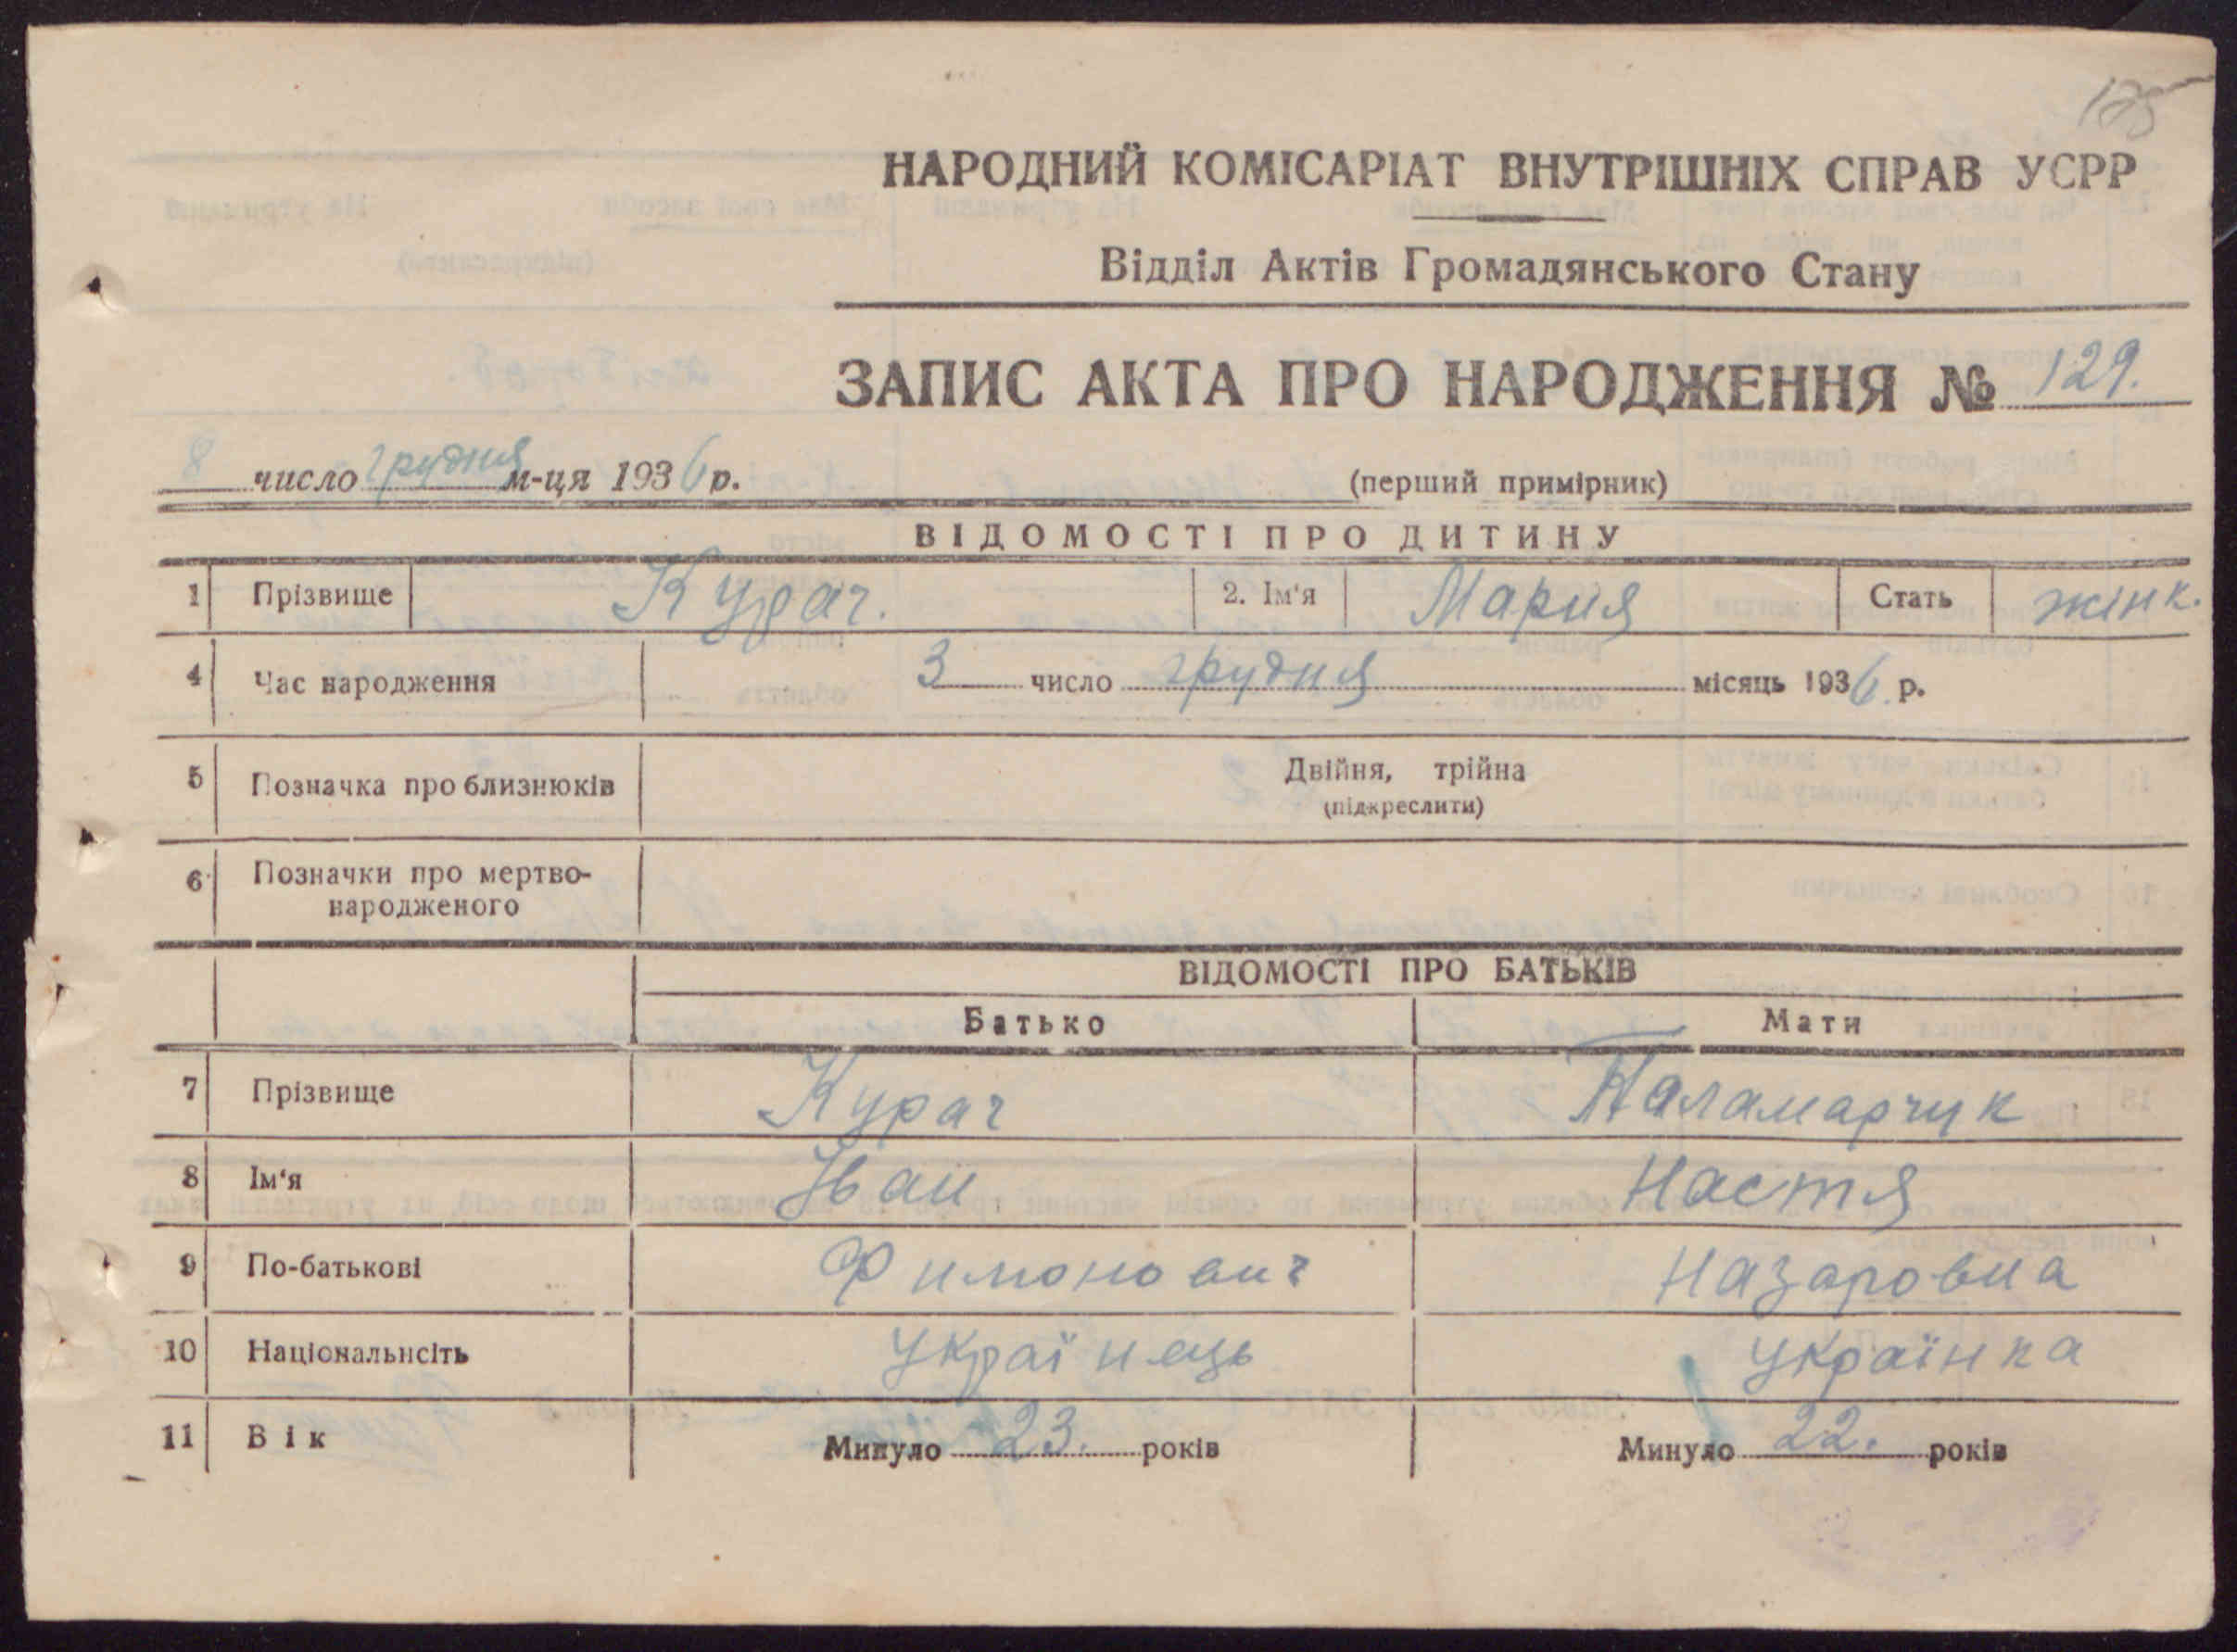 125
НАРОДНИЙ КОМІСАРІАТ ВНУТРІШНІХ СПРАВ УСРР
Відділ Актів Громадянського Стану
ЗАПИС АКТА ПРО НАРОДЖЕННЯ № 129.
8 число грудня м-ця 1936 р. (перший примірник)
ВІДОМОСТІ ПРО ДИТИНУ
1 Прізвище Курач. 2. Ім'я Мария Стать жінк.
4 Час народження 3 число грудня місяць 1936 р.
5 Позначка про близнюків Двійня, трійна
(підкреслити)
6 Позначки про мертво-
народженого
ВІДОМОСТІ ПРО БАТЬКІВ
Батько Мати
7 Прізвище Курач Паламарчук
8 Ім'я Іван Настя
9 По-батькові Филонович Назаровна
10 Національнсіть Українець Українка
11 Вік Минуло 23. років Минуло 22. років